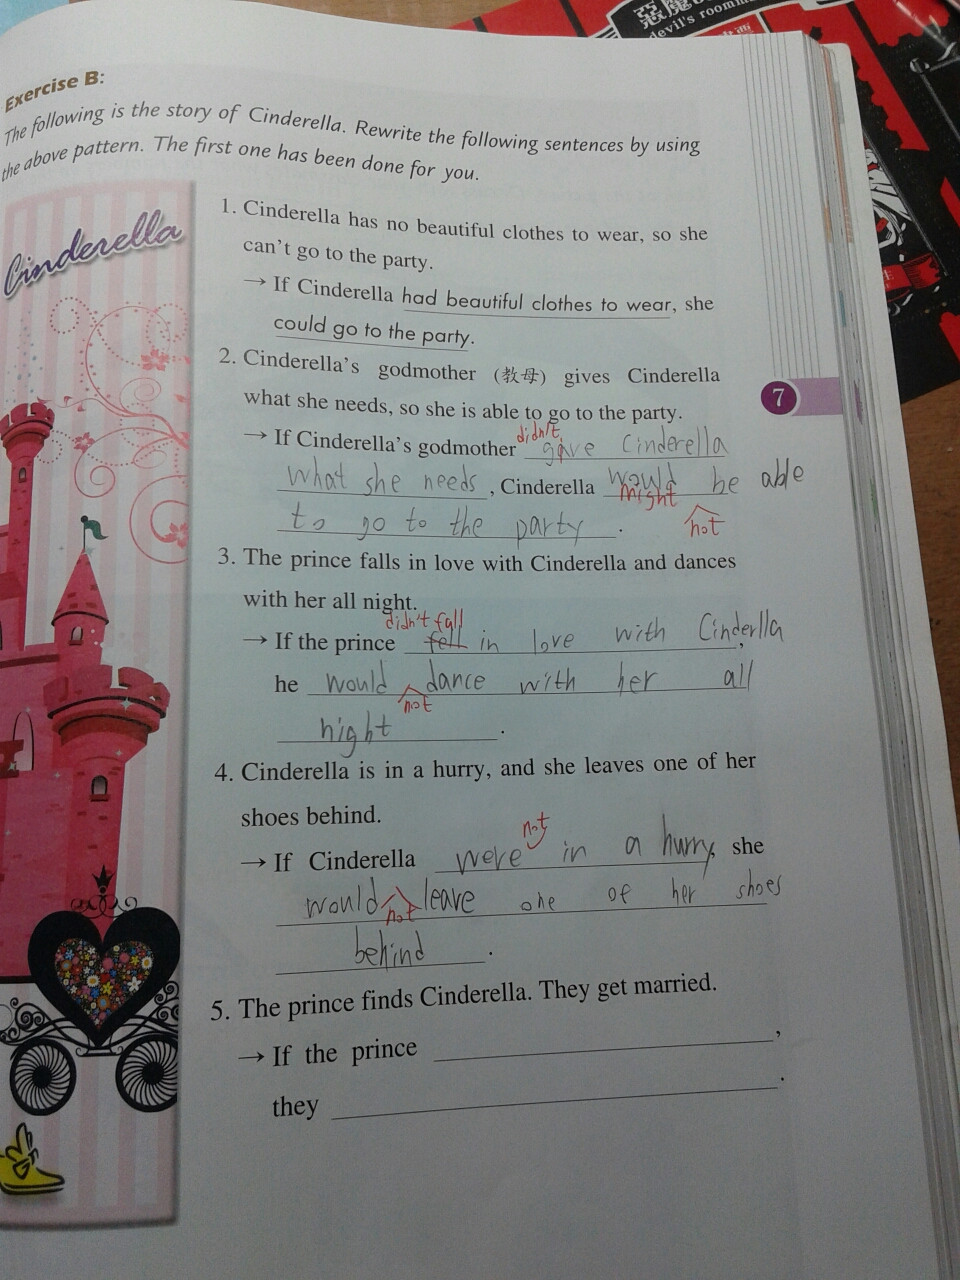 惡魔
devil's room
Exercise B:
The following is the story of Cinderella. Rewrite the following sentences by using
the above pattern. The first one has been done for you.
Cinderella
1. Cinderella has no beautiful clothes to wear, so she
can't go to the party.
→ If Cinderella had beautiful clothes to wear, she
could go to the party.
2. Cinderella's godmother (教母) gives Cinderella
what she needs, so she is able to go to the party.
7
didn't
→ If Cinderella's godmother gave Cinderella
what she needs, Cinderella would be able
might
to go to the party.
not
3. The prince falls in love with Cinderella and dances
with her all night.
didn't fall
→ If the prince fell in love with Cinderlla,
he would dance with her all
not
night.
4. Cinderella is in a hurry, and she leaves one of her
shoes behind.
not
→ If Cinderella were in a hurry, she
would leave one of her shoes
not
behind.
5. The prince finds Cinderella. They get married.
→ If the prince ,
they .